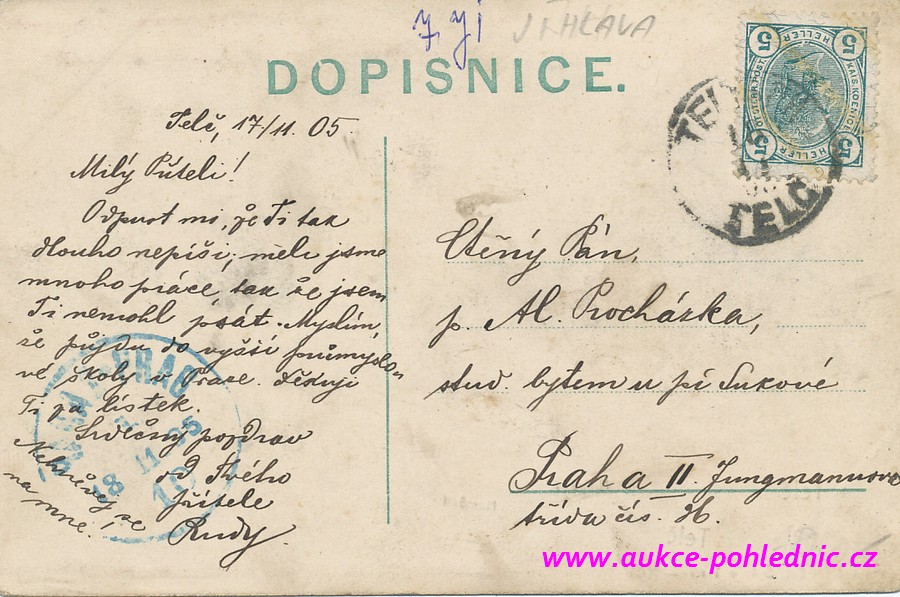 7 yj JIHLAVA
DOPISNICE.
5 HELLER 5
KAIS. KOENIGL.
OESTERR. POST.
5 HELLER 5
TELČ
Telč, 17/11. 05.
Milý Příteli!
Odpusť mi, že Ti tak
dlouho nepíši, měli jsme
mnoho práce, tak že jsem
Ti nemohl psát. Myslím,
že půjdu do vyšší průmyslo-
vé školy v Praze. Děkuji
Ti za lístek.
Srdečný pozdrav
od Tvého
přítele
Rudy.
Nehněvej se
na mne!
PRAG
18 11 05
Ctěný Pán,
p. Al. Procházka,
stud. bytem u pí Sukové
Praha II. Jungmannova
třída čís. 26.
www.aukce-pohlednic.cz